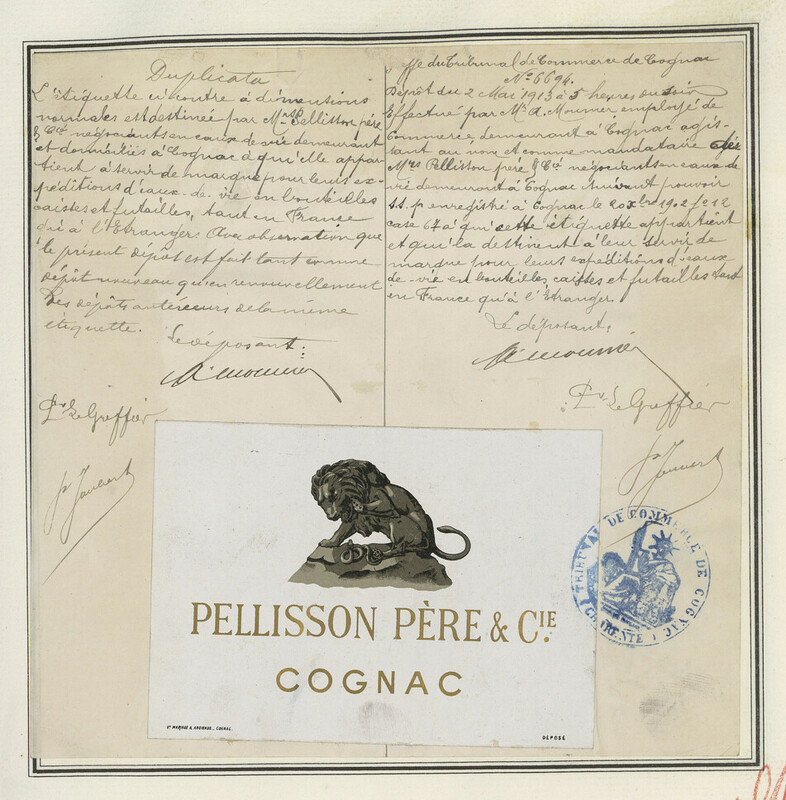 Duplicata
L'étiquette ci contre à dimentions
normales est destinée par Mrs Pellisson père
& Cie négociants en eaux de vie demeurant
et domiciliés à Cognac à qu'elle appar-
tient à servir de marque pour leurs ex-
péditions d'eaux-de-vie en bouteilles
caisses et futailles, tant en France
qu'à l'Etranger. Avec observation que
le présent dépôt est fait tant comme
dépôt nouveau qu'en renouvellement
des dépôts antérieurs de la même
étiquette.
Le déposant:
Le Greffier
Greffe du Tribunal de Commerce de Cognac
No 6694.
Dépôt du 2 Mai 1913 à 5 heures du soir
Effectué par Mr A. Mounier employé de
Commerce demeurant à Cognac agis-
tant au nom et comme mandataire de
Mrs Pellisson père & Cie négociants en eaux de
vie demeurant à Cognac suivant pouvoir
s.s.p enregistré à Cognac le 20 xbre 1902 fo 12
case 67 à qui cette étiquette appartient
et qui la destinent à leur servir de
marque pour leurs expéditions d'eaux
de-vie en bouteilles, caisses et futailles tant
en France qu'à l'Etranger.
Le déposant,
Le Greffier
PELLISSON PÈRE & CIE.
COGNAC
DÉPOSÉ
TRIBUNAL DE COMMERCE DE COGNAC
(CHARENTE)